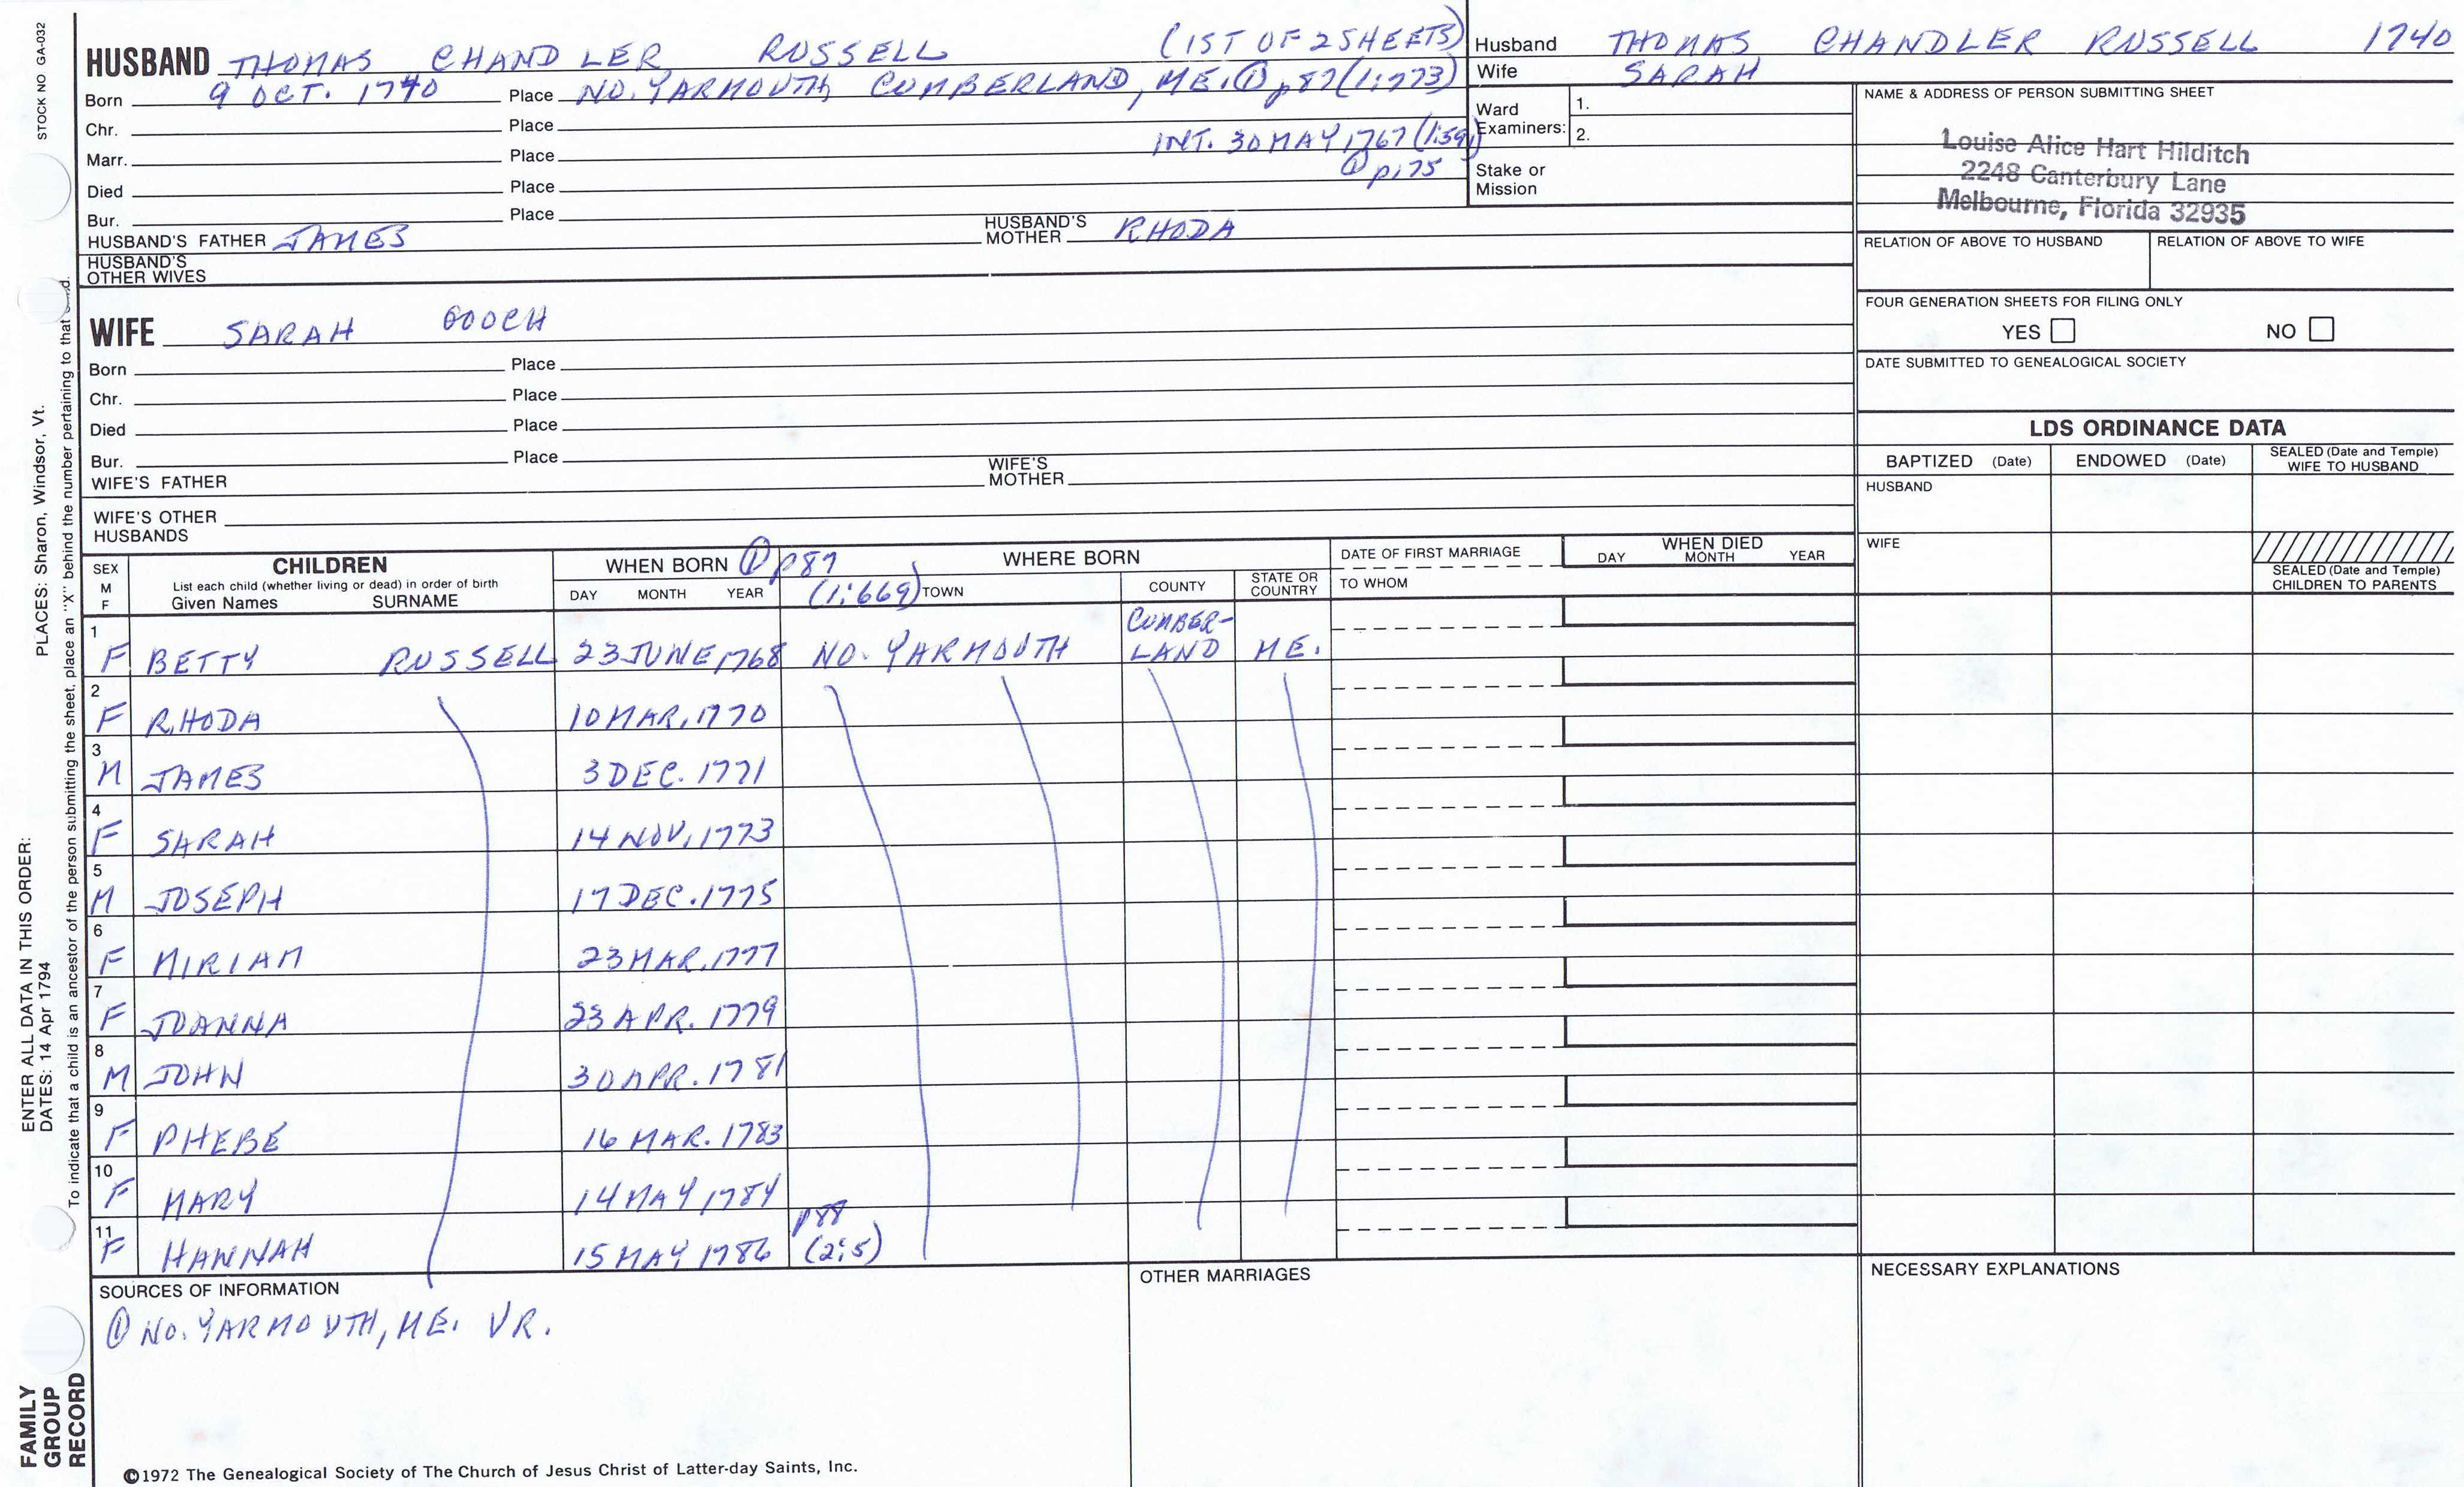 STOCK NO GA-032
HUSBAND THOMAS CHANDLER RUSSELL (1ST OF 2 SHEETS)
Born 9 OCT. 1740 Place NO. YARMOUTH, CUMBERLAND, ME. ① p87 (1:773)
Chr. Place
Marr. Place INT. 30 MAY 1767 (1:591)
Died Place ① p175
Bur. Place
HUSBAND'S FATHER JAMES HUSBAND'S MOTHER RHODA
HUSBAND'S OTHER WIVES
WIFE SARAH GOOCH
Born Place
Chr. Place
Died Place
Bur. Place
WIFE'S FATHER WIFE'S MOTHER
WIFE'S OTHER HUSBANDS
Husband THOMAS CHANDLER RUSSELL 1740
Wife SARAH
Ward Examiners: 1.
2.
Stake or Mission
NAME & ADDRESS OF PERSON SUBMITTING SHEET
Louise Alice Hart Hilditch
2248 Canterbury Lane
Melbourne, Florida 32935
RELATION OF ABOVE TO HUSBAND RELATION OF ABOVE TO WIFE
FOUR GENERATION SHEETS FOR FILING ONLY
YES NO
DATE SUBMITTED TO GENEALOGICAL SOCIETY
LDS ORDINANCE DATA
BAPTIZED (Date) ENDOWED (Date) SEALED (Date and Temple) WIFE TO HUSBAND
HUSBAND
WIFE
SEALED (Date and Temple) CHILDREN TO PARENTS
SEX M F CHILDREN WHEN BORN ① p87 WHERE BORN DATE OF FIRST MARRIAGE WHEN DIED
List each child (whether living or dead) in order of birth
Given Names SURNAME DAY MONTH YEAR (1:669) TOWN COUNTY STATE OR COUNTRY TO WHOM DAY MONTH YEAR
1 F BETTY RUSSELL 23 JUNE, 1768 NO. YARMOUTH CUMBER-LAND ME.
2 F RHODA 10 MAR, 1770
3 M JAMES 3 DEC. 1771
4 F SARAH 14 NOV, 1773
5 M JOSEPH 17 DEC. 1775
6 F MIRIAM 23 MAR, 1777
7 F JOANNA 23 APR. 1779
8 M JOHN 30 APR. 1781
9 F PHEBE 16 MAR. 1783
10 F MARY 14 MAY 1784
11 F HANNAH 15 MAY 1786 p88 (2:5)
SOURCES OF INFORMATION
① NO. YARMOUTH, ME. VR.
OTHER MARRIAGES
NECESSARY EXPLANATIONS
©1972 The Genealogical Society of The Church of Jesus Christ of Latter-day Saints, Inc.
FAMILY GROUP RECORD
ENTER ALL DATA IN THIS ORDER:
DATES: 14 Apr 1794
PLACES: Sharon, Windsor, Vt.
To indicate that a child is an ancestor of the person submitting the sheet, place an "X" behind the number pertaining to that